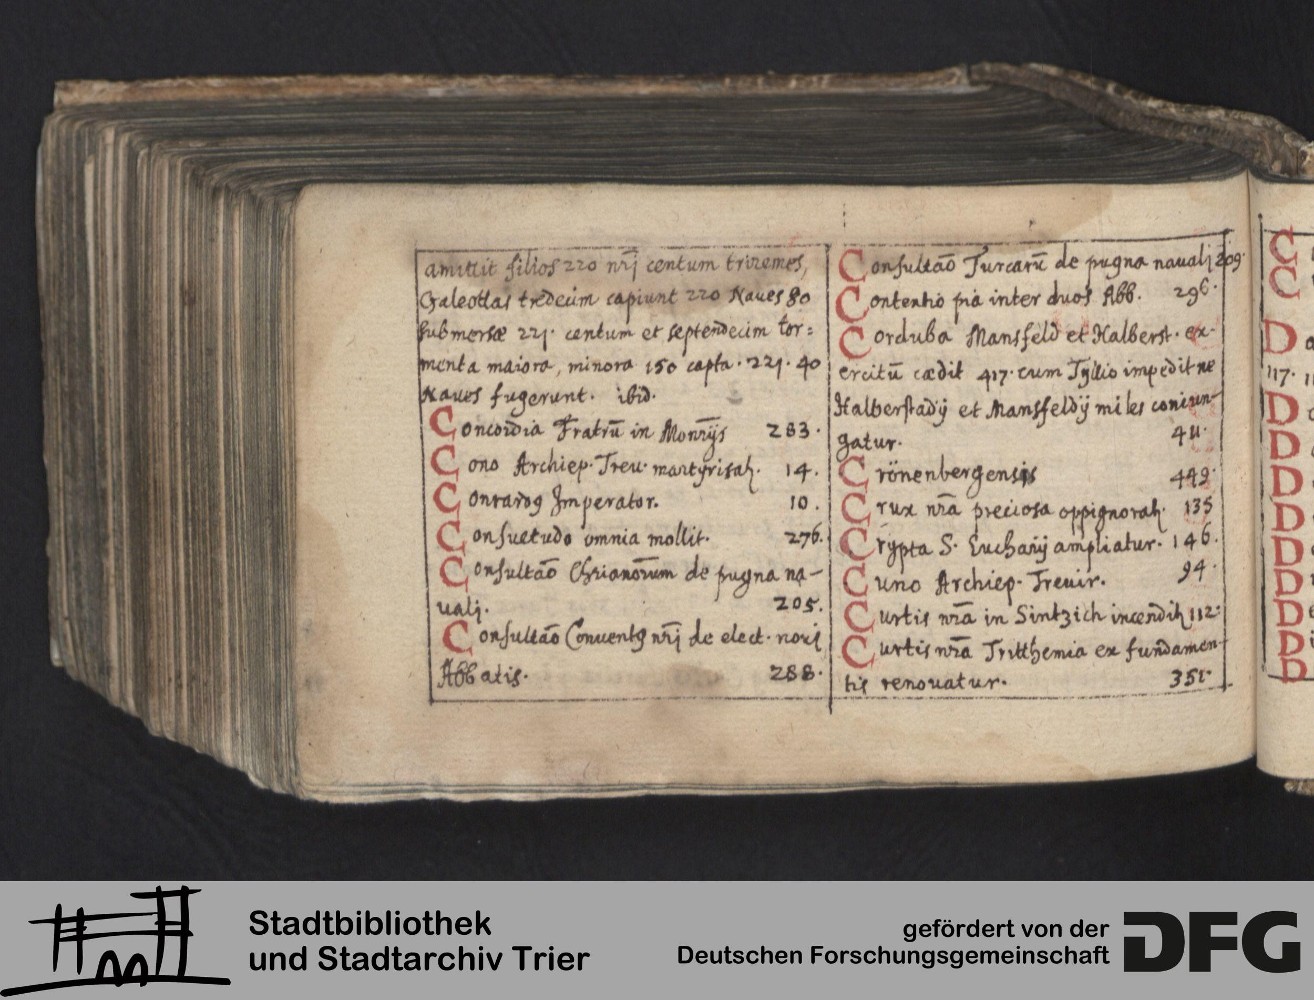 amittit filios 220 nrĩ centum triremes,
Galeottas tredecim capiunt 220 Naues 80
submersæ 221. centum et septendecim tor=
menta maiora, minora 150 capta. 221. 40
Naues fugerunt. ibid.
Concordia Fratrũ in Monrÿs 283.
Cono Archiep. Treu. martyrisat. 14.
Conradꝯ Imperator. 10.
Consuetudo omnia mollit. 276.
Consultaõ Chrianorum de pugna na-
uali. 205.
Consultaõ Conventꝯ nrĩ de elect. noui
Abbatis. 288.
Consultaõ Turcarũ de pugna nauali 209.
Contentio pia inter duos Abb. 296.
Corduba Mansfeld et Halberst. ex-
ercitũ cædit 417. cum Tyllio impedit ne
Halberstadÿ et Mansfeldÿ miles coniun-
gatur. 411.
Crönenbergensis 449.
Crux nrã preciosa oppignorat. 135
Crypta S. Eucharÿ ampliatur. 146.
Cuno Archiep. Treuir. 94.
Curtis nrã in Sintzich incendit 112.
Curtis nrã Tritthemia ex fundamen-
tis renouatur. 351.
C
C
D
117.
D
D
D
D
D
D
D
D
Stadtbibliothek
und Stadtarchiv Trier
gefördert von der
Deutschen Forschungsgemeinschaft
DFG